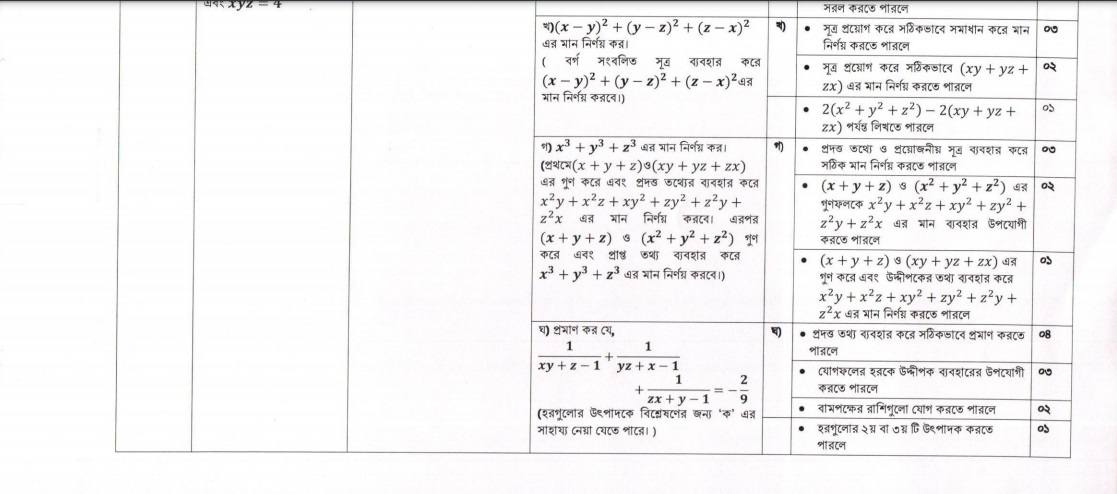 এবং xyz = 4
সরল করতে পারলে
খ)(x − y)² + (y − z)² + (z − x)²
এর মান নির্ণয় কর।
( বর্গ সংবলিত সূত্র ব্যবহার করে
(x − y)² + (y − z)² + (z − x)²এর
মান নির্ণয় করবে।)
খ)
• সূত্র প্রয়োগ করে সঠিকভাবে সমাধান করে মান
নির্ণয় করতে পারলে
০৩
• সূত্র প্রয়োগ করে সঠিকভাবে (xy + yz +
zx) এর মান নির্ণয় করতে পারলে
০২
• 2(x² + y² + z²) − 2(xy + yz +
zx) পর্যন্ত লিখতে পারলে
০১
গ) x³ + y³ + z³ এর মান নির্ণয় কর।
(প্রথমে(x + y + z)ও(xy + yz + zx)
এর গুণ করে এবং প্রদত্ত তথ্যের ব্যবহার করে
x²y + x²z + xy² + zy² + z²y +
z²x এর মান নির্ণয় করবে। এরপর
(x + y + z) ও (x² + y² + z²) গুণ
করে এবং প্রাপ্ত তথ্য ব্যবহার করে
x³ + y³ + z³ এর মান নির্ণয় করবে।)
গ)
• প্রদত্ত তথ্যে ও প্রয়োজনীয় সূত্র ব্যবহার করে
সঠিক মান নির্ণয় করতে পারলে
০৩
• (x + y + z) ও (x² + y² + z²) এর
গুণফলকে x²y + x²z + xy² + zy² +
z²y + z²x এর মান ব্যবহার উপযোগী
করতে পারলে
০২
• (x + y + z) ও (xy + yz + zx) এর
গুণ করে এবং উদ্দীপকের তথ্য ব্যবহার করে
x²y + x²z + xy² + zy² + z²y +
z²x এর মান নির্ণয় করতে পারলে
০১
ঘ) প্রমাণ কর যে,
1/(xy + z − 1) + 1/(yz + x − 1)
+ 1/(zx + y − 1) = − 2/9
(হরগুলোর উৎপাদকে বিশ্লেষণের জন্য ‘ক’ এর
সাহায্য নেয়া যেতে পারে। )
ঘ)
• প্রদত্ত তথ্য ব্যবহার করে সঠিকভাবে প্রমাণ করতে
পারলে
০৪
• যোগফলের হরকে উদ্দীপক ব্যবহারের উপযোগী
করতে পারলে
০৩
• বামপক্ষের রাশিগুলো যোগ করতে পারলে
০২
• হরগুলোর ২য় বা ৩য় টি উৎপাদক করতে
পারলে
০১